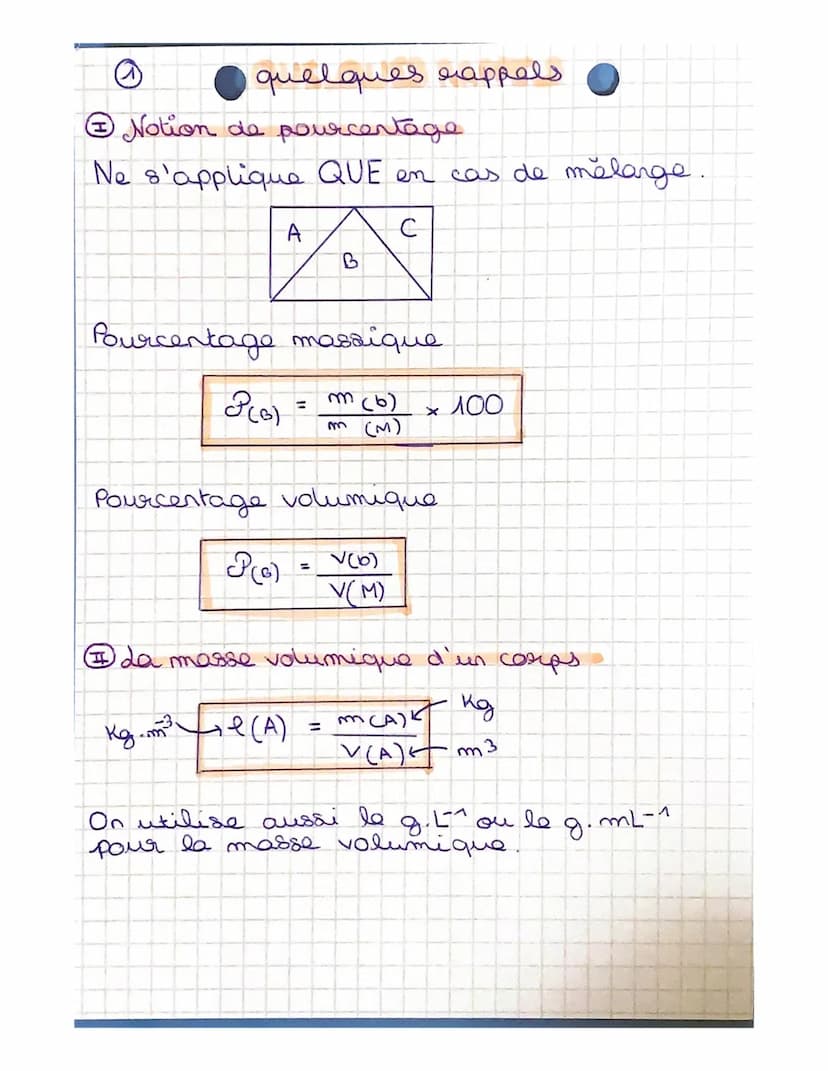 ① quelques rappels
Ⅰ Notion de pourcentage
Ne s'applique QUE en cas de mélange.
A
C
B
Pourcentage massique
P(B) = m(b) / m (M) × 100
Pourcentage volumique
P(B) = V(b) / V(M)
Ⅱ La masse volumique d'un corps
Kg.m⁻³ → ρ(A) = m(A) / V(A) ← Kg ← m³
On utilise aussi le g.L⁻¹ ou le g.mL⁻¹
pour la masse volumique.